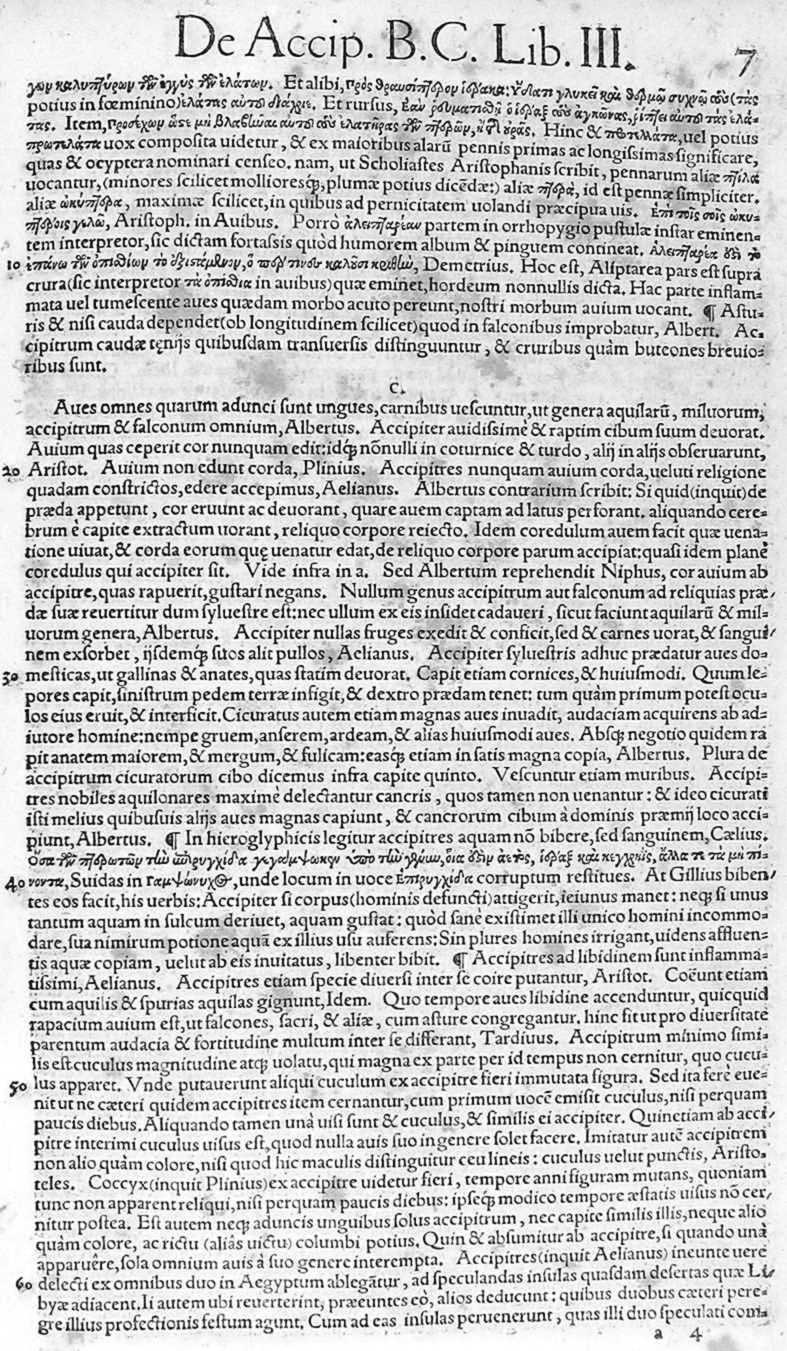 De Accip. B. C. Lib. III. 7
Et alibi,
potius in fœminino) Et rursus,
Item, Hinc & uel potius
uox composita uidetur, & ex maioribus alarũ pennis primas ac longissimas significare,
quas & ocyptera nominari censeo. nam, ut Scholiastes Aristophanis scribit, pennarum aliæ
uocantur, (minores scilicet mollioresq́, plumæ potius dicẽdæ:) aliæ id est pennæ simpliciter.
aliæ maximæ scilicet, in quibus ad pernicitatem uolandi præcipua uis.
Aristoph. in Auibus. Porrò partem in orrhopygio pustulæ instar eminen=
tem interpretor, sic dictam fortassis quòd humorem album & pinguem contineat.
10 Demetrius. Hoc est, Aliptarea pars est supra
crura (sic interpretor in auibus) quæ eminet, hordeum nonnullis dicta. Hac parte inflam=
mata uel tumescente aues quædam morbo acuto pereunt, nostri morbum auium uocant. ¶ Astu=
ris & nisi cauda dependet (ob longitudinem scilicet) quod in falconibus improbatur, Albert. Ac=
cipitrum caudæ tęnijs quibusdam transuersis distinguuntur, & cruribus quàm buteones breuio=
ribus sunt.
C.
Aues omnes quarum adunci sunt ungues, carnibus uescuntur, ut genera aquilarũ, miluorum,
accipitrum & falconum omnium, Albertus. Accipiter auidissimè & raptim cibum suum deuorat.
Auium quas ceperit cor nunquam edit: idq́ nõnulli in coturnice & turdo, alij in alijs obseruarunt,
20 Aristot. Auium non edunt corda, Plinius. Accipitres nunquam auium corda, ueluti religione
quadam constrictos, edere accepimus, Aelianus. Albertus contrarium scribit: Si quid (inquit) de
præda appetunt, cor eruunt ac deuorant, quare auem captam ad latus perforant. aliquando cere=
brum è capite extractum uorant, reliquo corpore reiecto. Idem coredulum auem facit quæ uena=
tione uiuat, & corda eorum quę uenatur edat, de reliquo corpore parum accipiat: quasi idem planè
coredulus qui accipiter sit. Vide infra in a. Sed Albertum reprehendit Niphus, cor auium ab
accipitre, quas rapuerit, gustari negans. Nullum genus accipitrum aut falconum ad reliquias præ/
dæ suæ reuertitur dum syluestre est: nec ullum ex eis insidet cadaueri, sicut faciunt aquilarũ & mil=
uorum genera, Albertus. Accipiter nullas fruges exedit & conficit, sed & carnes uorat, & sangui/
nem exsorbet, ijsdemq́ʒ sitos alit pullos, Aelianus. Accipiter syluestris adhuc prædatur aues do=
30 mesticas, ut gallinas & anates, quas statim deuorat. Capit etiam cornices, & huiusmodi. Quum le=
pores capit, sinistrum pedem terræ insigit, & dextro prædam tenet: tum quàm primum potest ocu=
los eius eruit, & interficit. Cicuratus autem etiam magnas aues inuadit, audaciam acquirens ab ad=
iutore homine: nempe gruem, anserem, ardeam, & alias huiusmodi aues. Absq́ʒ negotio quidem ra
pit anatem maiorem, & mergum, & fulicam: easq́ʒ etiam in satis magna copia, Albertus. Plura de
accipitrum cicuratorum cibo dicemus infra capite quinto. Vescuntur etiam muribus. Accipi=
tres nobiles aquilonares maximè delectantur cancris, quos tamen non uenantur: & ideo cicurati
isti melius quibusuis alijs aues magnas capiunt, & cancrorum cibum à dominis præmij loco acci=
piunt, Albertus. ¶ In hieroglyphicis legitur accipitres aquam nõ bibere, sed sanguinem, Cælius.
40 Suidas in unde locum in uoce corruptum restitues. At Gillius biben/
tes eos facit, his uerbis: Accipiter si corpus (hominis defuncti) attigerit, ieiunus manet: neq́ʒ si unus
tantum aquam in sulcum deriuet, aquam gustat: quòd sanè existimet illi unico homini incommo=
dare, sua nimirum potione aquã ex illius usu auferens: Sin plures homines irrigant, uidens affluen=
tis aquæ copiam, uelut ab eis inuitatus, libenter bibit. ¶ Accipitres ad libidinem sunt inflamma=
tissimi, Aelianus. Accipitres etiam specie diuersi inter se coire putantur, Aristot. Coëunt etiam
cum aquilis & spurias aquilas gignunt, Idem. Quo tempore aues libidine accenduntur, quicquid
rapacium auium est, ut falcones, sacri, & aliæ, cum asture congregantur. hinc fit ut pro diuersitate
parentum audacia & fortitudine multum inter se differant, Tardiuus. Accipitrum minimo simi=
lis est cuculus magnitudine atq́ʒ uolatu, qui magna ex parte per id tempus non cernitur, quo cucu=
50 lus apparet. Vnde putauerunt aliqui cuculum ex accipitre fieri immutata figura. Sed ita ferè eue=
nit ut ne cæteri quidem accipitres item cernantur, cum primum uocẽ emisit cuculus, nisi perquam
paucis diebus. Aliquando tamen unà uisi sunt & cuculus, & similis ei accipiter. Quinetiam ab acci/
pitre interimi cuculus uisus est, quod nulla auis suo in genere solet facere. Imitatur autẽ accipitrem
non alio quàm colore, nisi quod hic maculis distinguitur ceu lineis: cuculus uelut punctis, Aristo=
teles. Coccyx (inquit Plinius) ex accipitre uidetur fieri, tempore anni figuram mutans, quoniam
tunc non apparent reliqui, nisi perquam paucis diebus: ipseq́ʒ modico tempore æstatis uisus nõ cer/
nitur postea. Est autem neq́ʒ aduncis unguibus solus accipitrum, nec capite similis illis, neque alio
quàm colore, ac rictu (aliâs uictu) columbi potius. Quin & absumitur ab accipitre, si quando unà
apparuêre, sola omnium auis à suo genere interempta. Accipitres (inquit Aelianus) ineunte uere
60 delecti ex omnibus duo in Aegyptum ablegãtur, ad speculandas insulas quasdam desertas quæ Li/
byæ adiacent. Ii autem ubi reuerterint, præeuntes eò, alios deducunt: quibus duobus cæteri pere=
gre illius profectionis festum agunt. Cum ad eas insulas peruenerunt, quas illi duo speculati com=
a 4